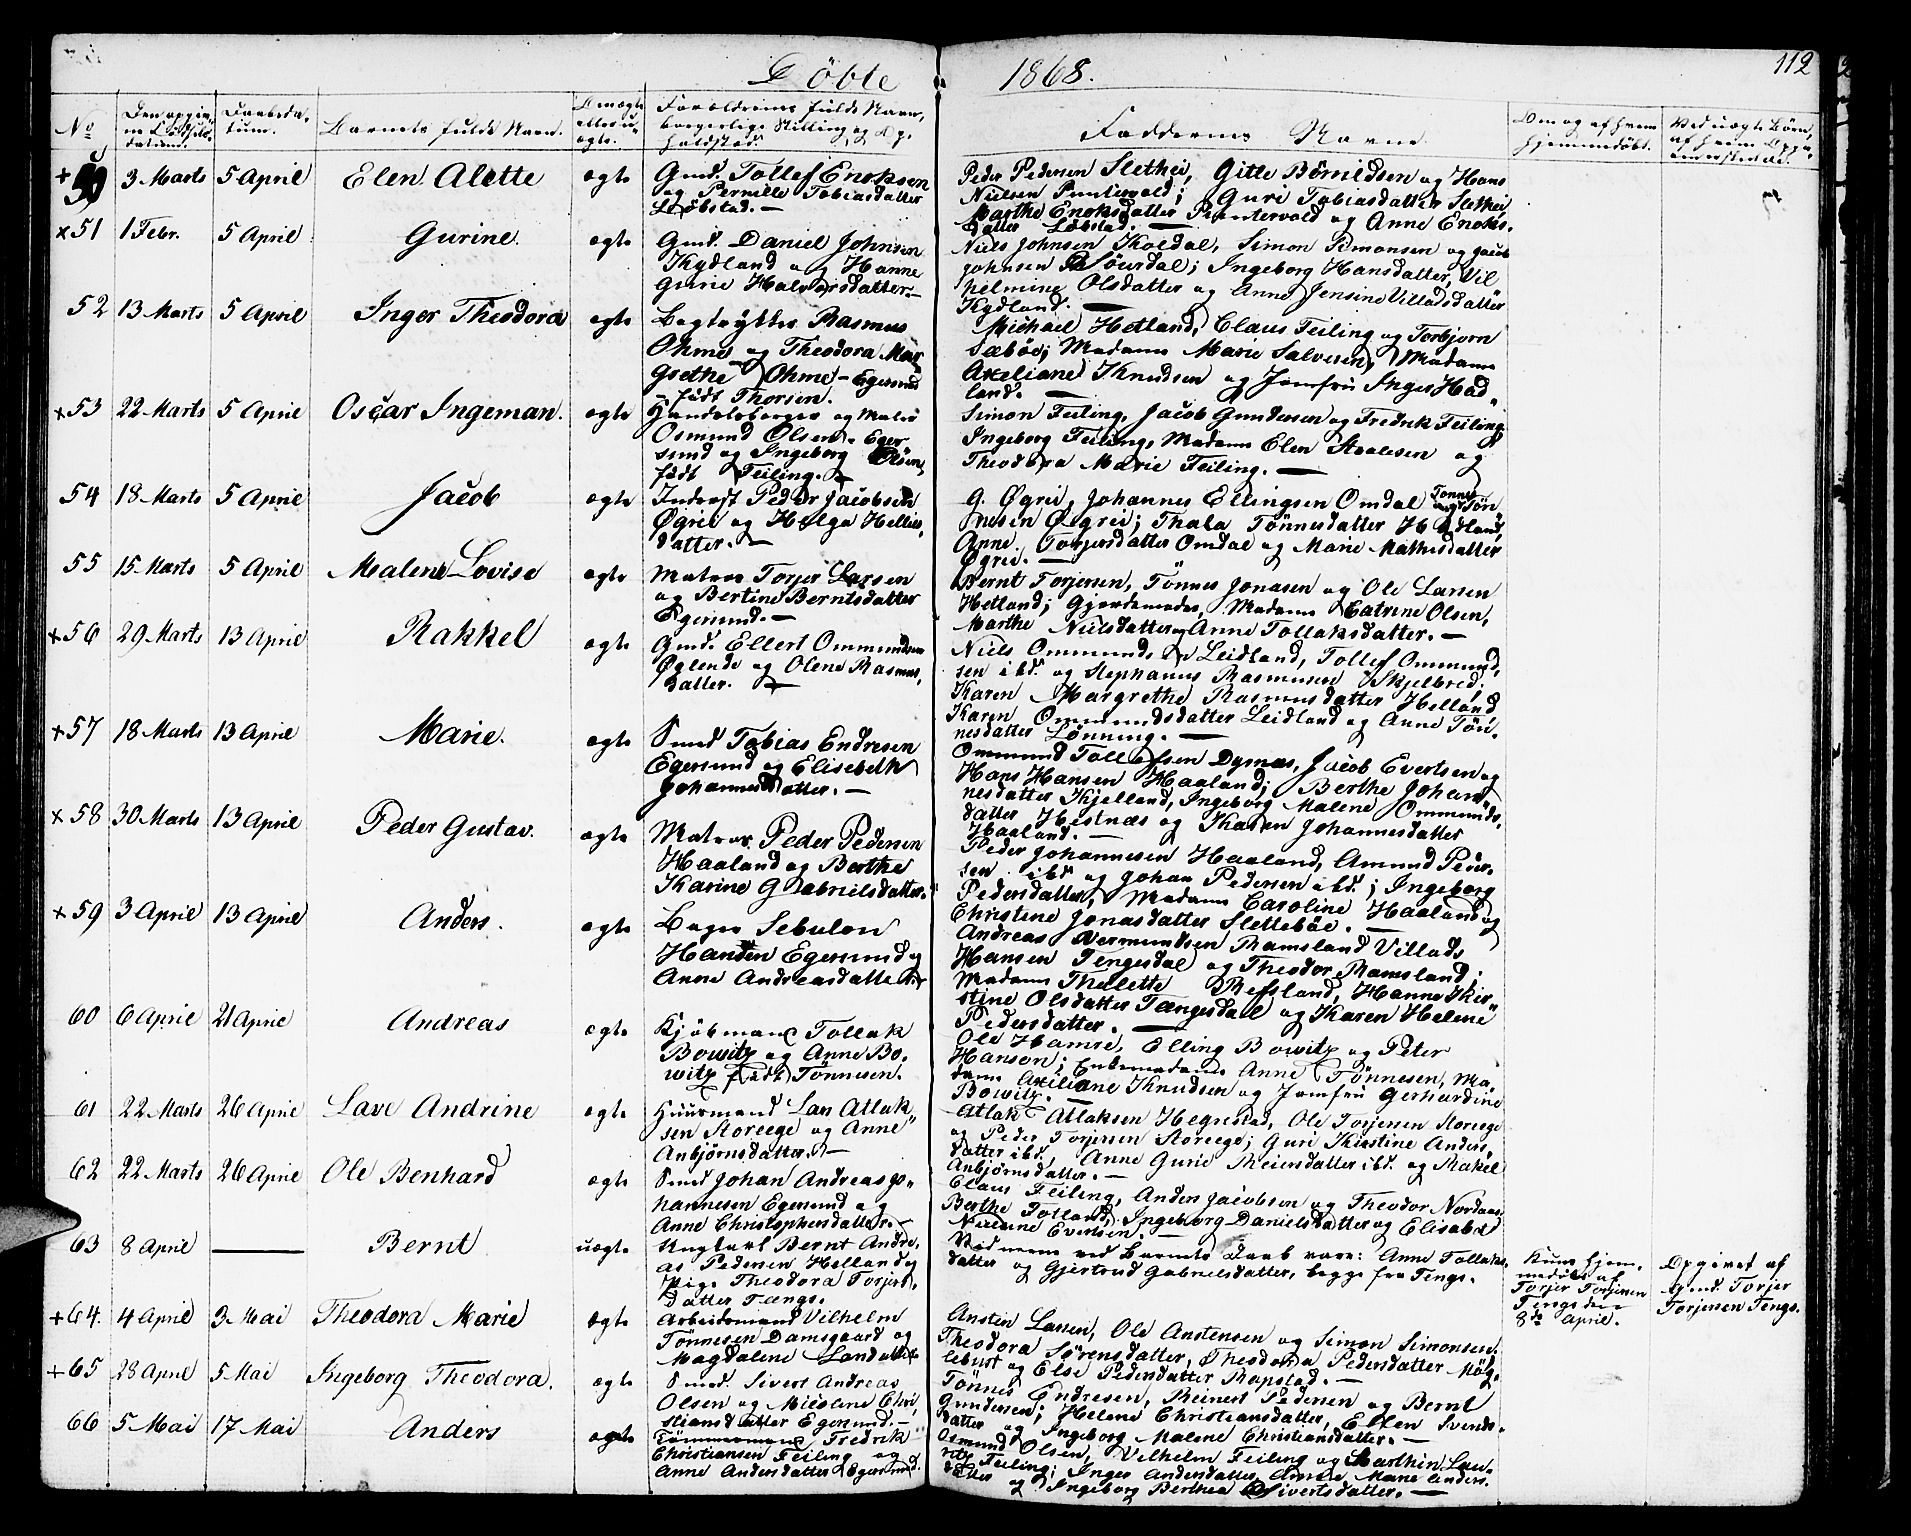 Døbte 1868. 112
No
Den opgivne Fødselsdatum.
Daabsdatum.
Barnets fulde Navn.
Om ægte eller uægte.
Forældrenes fulde Navn, borgerlige Stilling og Opholdssted.
Faddernes Navne.
Om og af hvem hjemmedøbt.
Ved uægte Børn, af hvem Opgivelsen skede.
+ 50 3 Marts 5 April Elen Alette ægte
Gmd. Tollef Enoksen
og Pernille Tobiasdatter
Løbstad. —
Peder Pedersen Slethei, Gitle Börrildsen og Hans
Nielsen Puntervold; Guri Tobiasdatter Slethei,
Marthe Enoksdatter Puntervold og Anne Enoks-
datter Løbstad. —
x51 1 Febr. 5 April Gurine. ægte
Gmd. Daniel Johnsen
Kydland og Hanne
Gurie Halvorsdatter. —
Niels Johnsen Koldal, Simon Simonsen og Jacob
Johnsen Sourdal; Ingeborg Hansdatter, Vil
helmine Olsdatter og Anne Jensine Villadsdatter
Kydland. —
52 13 Marts 5 April Inger Theodora ægte
Rasmus
Ohme og Theodora Mar
grethe Ohme – Egersund
– født Thorsen.
Michael Hetland, Claus Feiling og Torbjørn
Sæbøe; Madame Marie Salvesen, Madame
Axeliane Knudsen og Jomfru Inger Had-
land. —
x53 22 Marts 5 April Oscar Ingeman. ægte
Handelsborger og Maler
Osmund Olsen. Eger
sund og Ingeborg Olsen,
født Feiling. —
Simon Feiling, Jacob Gundersen og Fredrik Feiling
Ingeborg Feiling, Madame Elen Aalesen og
Theodora Marie Feiling. —
54 18 Marts 5 April Jacob ægte
Inderst Peder Jacobsen
Øgrei og Helga Hellies
datter. —
G. Øgrei, Johannes Ellingsen Omdal og Tönnes Tön-
nesen Øgrei; Thala Tönnesdatter Hadland,
Anne Torjersdatter Omdal og Marie Mathisdatter
Øgrei. —
55 15 Marts 5 April Malene Lovise ægte
Matros Torjer Larsen
og Bertine Berntsdatter
Egersund. —
Bernt Torjersen, Tönnes Jonasen og Ole Larsen
Hetland; Gjordemoder, Madame Catrine Olsen,
Marthe Nielsdatter og Anne Tollaksdatter. —
x56 29 Marts 13 April Rakkel ægte
Gmd. Ellert Ommundsen
Øglende og Olene Rasmus,
datter. —
Niels Ommundsen Leidland, Tollef Ommund,
sen ibd. og Stephanus Rasmusen Skjelbred.
Karen Margrethe Rasmusdatter Helland
Karen Ommundsdatter Leidland og Anne Tön-
nesdatter Lönning. —
x57 18 Marts 13 April Marie. ægte
Smed Tobias Endresen
Egersund og Elisebeth
Johannesdatter. —
Ommund Tollefsen Dysnæs, Jacob Evertsen og
Hans Hansen Haaland; Berthe Johan
nesdatter Kjelland, Ingeborg Malene Ommunds,
datter Hestnæs og Karen Johannesdatter
Haaland. —
x58 30 Marts 13 April Peder Gustav. ægte
Matros Peder Pedersen
Haaland og Berthe
Karine Gabrielsdatter.
Peder Johannesen Haaland, Amund Peder-
sen ibd. og Johan Pedersen ibd.; Ingeborg
Pedersdatter, Madame Caroline Haaland og
Christine Jonasdatter Slettebøe. —
x59 3 April 13 April Anders. ægte
Bager Sebulon
Hansen Egersund og
Anne Andreasdatter
Andreas Vermundsen Ramsland Villads
Hansen Tengesdal og Theodor Ramsland;
Madame Thelette Refsland, Hanne Kir-
stine Olsdatter Tængesdal og Karen Helene
Pedersdatter. —
60 6 April 21 April Andreas ægte
Kjøbmand Tollak
Bowitz og Anne Bo-
witz født Tönnesen.
Ole Hamre, Elling Bowitz og Peter
Hanson; Enkemadame Anne Tönnesen, Ma-
dame Axiliane Knudsen og Jomfru Gerhardine
Bowitz. —
61 22 Marts 26 April Lave Andrine ægte
Huusmand Lars Atlak-
sen Storeege og Anne
Anbjørnsdatter. —
Atlak Atlaksen Hegrestad, Ole Torjersen Storeege
og Peder Torjersen Storeege; Guri Kirstine Anders,
datter ibd., Anne Gurie Reiersdatter ibd. og Rakel
Anbjørnsdatter. —
62 22 Marts 26 April Ole Benhard ægte
Smed Johan Andreas Jo-
hannesen Egersund og
Anne Christophersdatter. —
Claus Feiling, Anders Jacobsen og Theodor Nordaas
Berthe Totland, Ingeborg Danielsdatter og Elisabet
Nielsine Evertsen. —
63 8 April — Bernt uægte
Ungkarl Bernt Andre-
as Pedersen Helland og
Pige Theodora Torjers-
datter Tængs.
Vidnerne ved Barnets Daab vare: Anne Tollaks
datter og Gjertrud Gabrielsdatter, begge fra Tengs.
Kuns hjem-
medøbt af
Torjer Torjersen
Tengs den
8de April.
Opgivet af
Gmd. Torjer
Torjersen Tengs.
+64. 4 April 3 Mai Theodora Marie ægte
Arbeidsmand Vilhelm
Tönnesen Damsgaard og
Magdalene
Austen Larsen, Ole Austensen og Simon Simonsen.
Theodora Sørensdatter, Theodora Pedersdatter Møg-
lebust og Else Pedersdatter Rapstad. —
+65 28 April 5 Mai Ingeborg Theodora. ægte
Smed. Sivert Andreas
Olsen og Nicoline Chri,
stiansdatter Egersund. —
Tönnes Endresen, Reinert Pedersen og Bernt
Gundersen; Helene Christiansdatter, Ellen Svends-
datter og Ingeborg Malene Christiansdatter. —
66 5 Mai 17 Mai Anders ægte
Tömmermand Fredrik
Christiansen Feiling og
Anne Andersdatter Egersund.
Osmund Olsen, Vilhelm Feiling og Marthin Lau-
ritz Feiling; Inger Andersdatter, Anne Marie Anders.
datter og Ingeborg Berthea Sivertsdatter. —